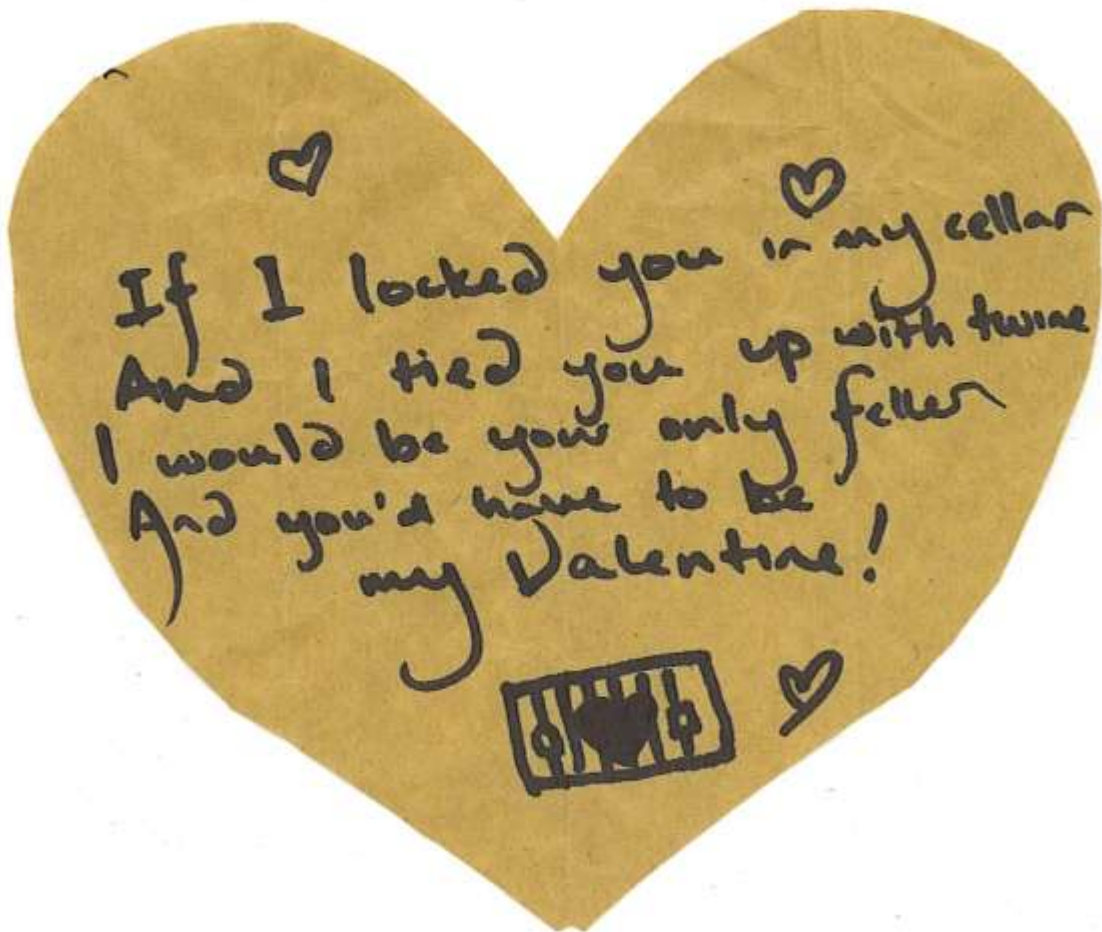 If I locked you in my cellar
And I tied you up with twine
I would be your only feller
And you'd have to be
my Valentine!